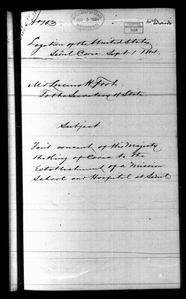 No 103
Legation of the United States
Seoul Corea Sept 1
Mr. Lucius H. Foot
To the Secretary of State
Subject
consent of His Majesty
the King of Corea to the
Establishment of a Mission
School and Hospital at Seoul